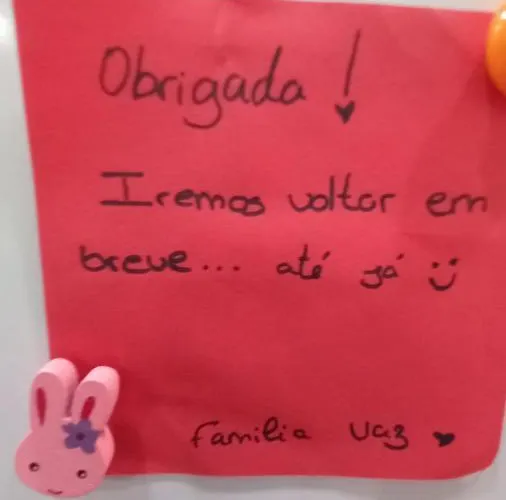 Obrigada!
Iremos voltar em
breve... até já :)
Familia Vaz